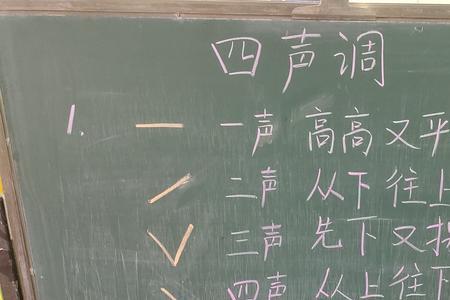 四声调
1. 一声 高高又平
二声 从下往上
三声 先下又
四声 从上往下